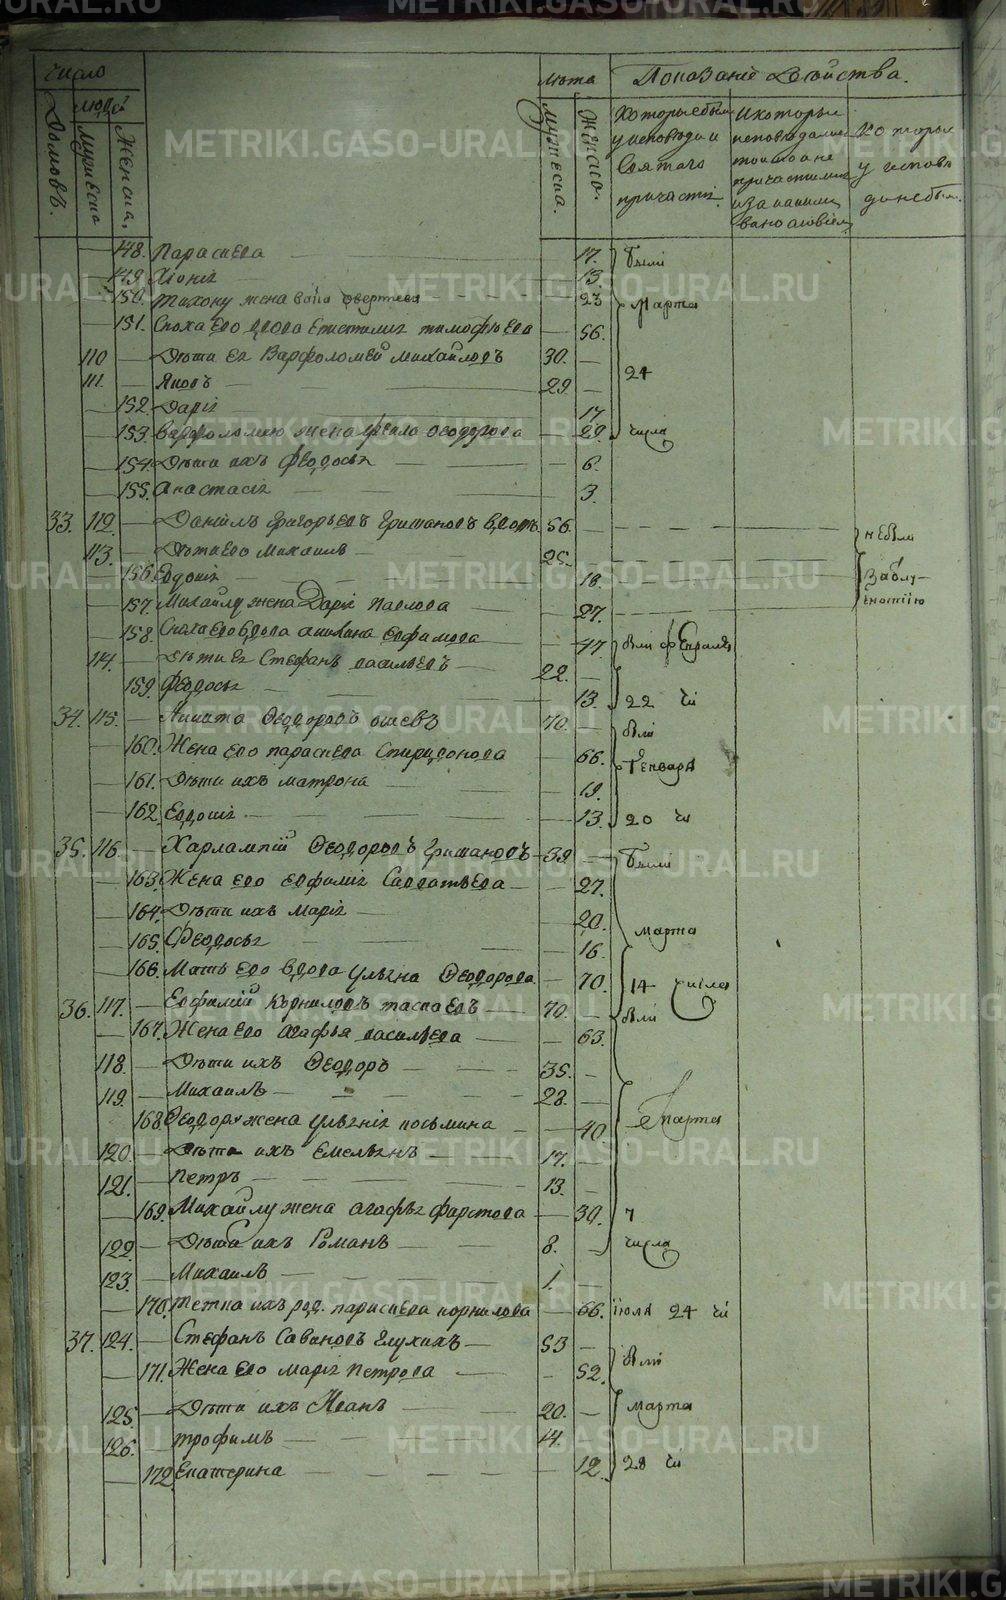 METRIKI.GASO-URAL.RU
Число
людей
лѣта
Показаніе действа.
Домовъ.
Мужеска
Женска.
Мужеска.
Женско.
Которые были
у исповеди и
святаго
причастія.
И которые
исповедались
токмо а не
причастились
и за какими
винословіем
Которые
у испове
ди не были.
148. Параскева 17. Были
149. Хіонія 13.
150. Тихону жена 23 Марта
151. Сноха его вдова Епистимия тимофѣева 56.
110 Дѣти ея Варфоломей михайловъ 30. 24
111. Яковъ 29
152. Дарія 17
153. Варфоломею жена Феодорова 29. числа
154. Дѣти ихъ Феодосья 6.
155. Анастасія 3.
33. 112. Даніилъ григорьевъ гришановъ вдовъ. 56. не были
113. Дѣти его михаилъ 25.
156. Евдокія 18. Заблу-
157. Михайлу жена Дарія павлова 27. жденію
158. Сноха его вдова акилина евфимова 47. были февраля
114. Дѣти ея Стефанъ васильевъ 22.
159. Феодосья 13. 22 чи
34. 115. Никита Феодоровъ 70. были
160. Жена его параскева Спиридонова 66. Генваря
161. Дѣти ихъ матрона 19.
162. Евдокія 13. 20 чи
35. 116. Харлампій Феодоровъ Гришановъ 39 Были
163. Жена его евфимія Савватѣева 27.
164. Дѣти ихъ Марія 20. Марта
165. Феодосья 16.
166. Мать его вдова ульяна Феодорова 70. 14 числа
36. 117. Евфимій Корниловъ таскаевъ 70. были
167. Жена его агафья васильева 63.
118. Дѣти ихъ Феодоръ 35.
119. Михаилъ 28.
168. Феодору жена ульянія козьмина 40. Марта
120. Дѣти ихъ емельянъ 17.
121. Петръ 13.
169. Михайлу жена агафья фирстова 30. 7
122. Дѣти ихъ Романъ 8. числа
123. Михаилъ 1.
170. Тетка ихъ род. параскева корнилова 66. Іюля 24 чи
37. 124. Стефанъ Савиновъ глухихъ 53 были
171. Жена его марія петрова 52.
125. Дѣти ихъ Иванъ 20. Марта
126. трофимъ 14.
172. Екатерина 12. 28 чи